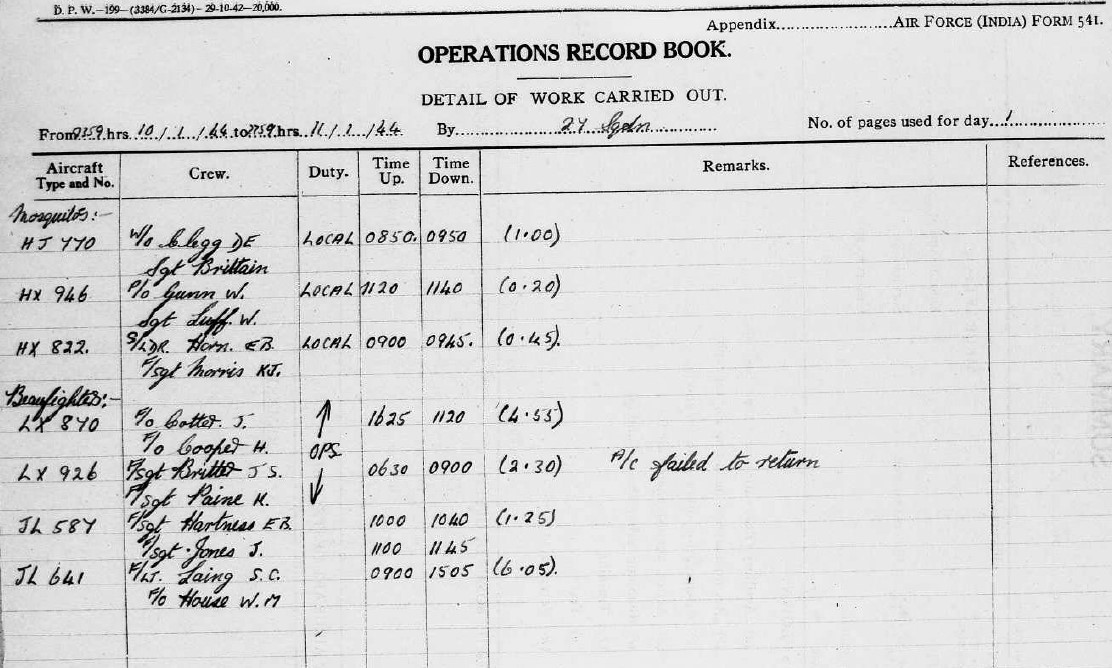 D. P. W.—199—(3384/G-2134)—29-10-42—20,000.
Appendix..............AIR FORCE (INDIA) FORM 541.
OPERATIONS RECORD BOOK.
DETAIL OF WORK CARRIED OUT.
From 0759 hrs. 10/1/44 to 0759 hrs. 11/1/44 By 27 Sqdn No. of pages used for day...1
Aircraft Type and No. Crew. Duty. Time Up. Time Down. Remarks. References.
Mosquitos:-
HJ 770 W/o Clegg DE LOCAL 0850. 0950 (1.00)
Sgt Brittain
HX 946 P/o Gunn W. LOCAL 1120 1140 (0.20)
Sgt Luff. W.
HX 822. S/LDR. Horn. EB. LOCAL 0900 0945. (0.45).
F/sgt Morris KJ.
Beaufighters:-
LX 870 F/o Cotter. J. 1625 1120 (4.55)
F/o Cooper H. OPS
LX 926 F/sgt Britter J S. 0630 0900 (2.30) A/c failed to return
F/sgt Paine K.
JL 587 F/sgt Hartness EB. 1000 1040 (1.25)
F/sgt Jones J. 1100 1145
JL 641 F/LT. Laing S.C. 0900 1505 (6.05).
F/o House W.M